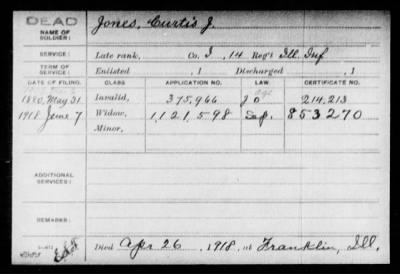 DEAD
NAME OF SOLDIER: Jones, Curtis J.
SERVICE: Late rank, Co. I, 14 Reg't Ill. Inf
TERM OF SERVICE: Enlisted , 1 Discharged , 1
DATE OF FILING. CLASS. APPLICATION NO. CERTIFICATE NO.
1880, May 31 Invalid, 375,966 214,213
1918, June 7 Widow, 1,121,598 853270
Minor,
ADDITIONAL SERVICES:
REMARKS:
Died Apr 26, 1918, at Franklin, Ill.